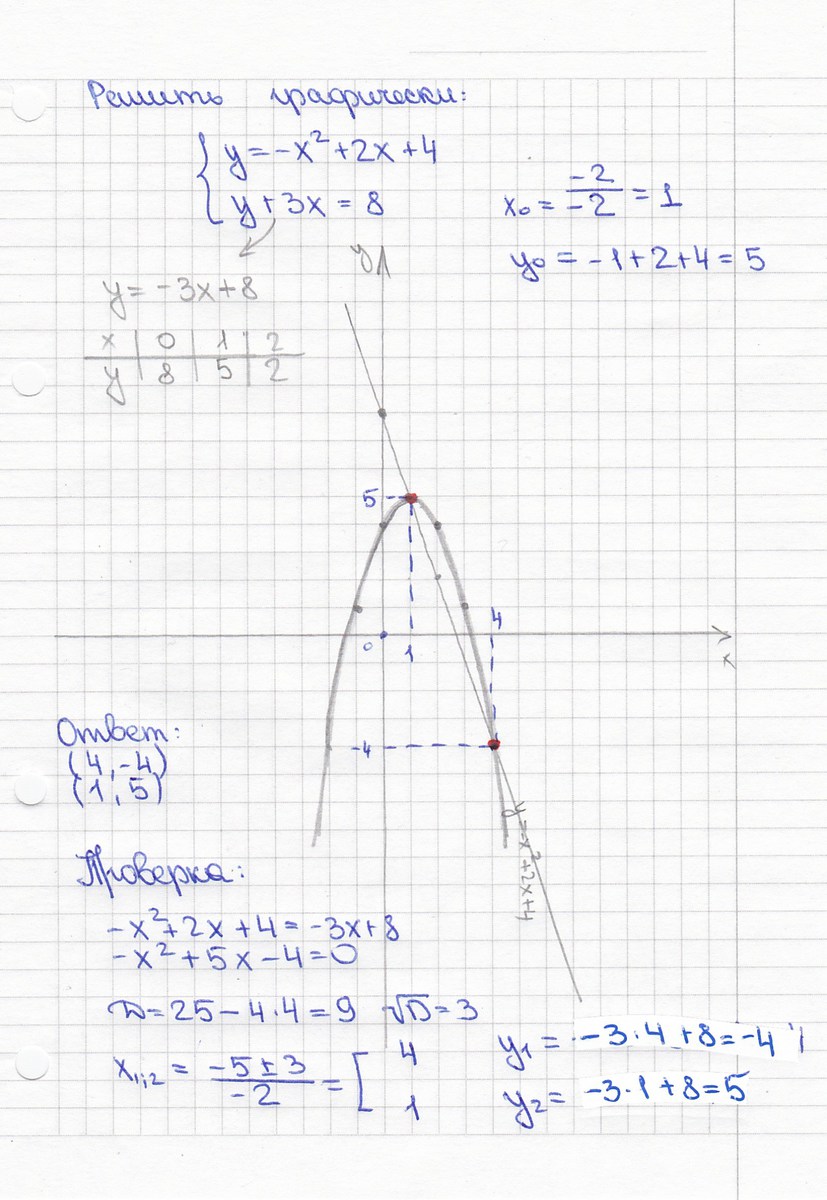 Решить графически:
{ y = -x² + 2x + 4
y + 3x = 8
x₀ = -2/-2 = 1
y₀ = -1 + 2 + 4 = 5
y = -3x + 8
x | 0 | 1 | 2
y | 8 | 5 | 2
y
5
4
0
1
x
-4
y = -x² + 2x + 4
Ответ:
(4, -4)
(1, 5)
Проверка:
-x² + 2x + 4 = -3x + 8
-x² + 5x - 4 = 0
D = 25 - 4·4 = 9 √D = 3
x₁;₂ = -5 ± 3/-2 = [ 4
1
y₁ = -3·4 + 8 = -4
y₂ = -3·1 + 8 = 5